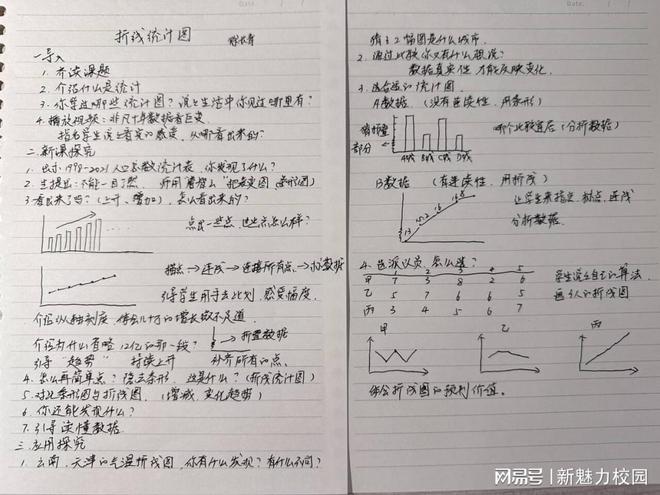 折线统计图
一、导入
1. 齐读课题
2. 介绍什么是统计
3. 你学过哪些统计图？说说生活中你见过哪里有？
4. 播放视频：非凡十年数据看巨变
指名学生说说看完的感受，从哪看出来的？
二、新课探究
1. 出示1998-2021人口总数统计表，你发现了什么？
2. 生提出：不能一目了然，
3. 看出来了吗？（上升、增加），怎么看出来的？
点出一些点，
描点→连线→连接所有点→数据
引导学生用手去比划，感受幅度，
介绍纵轴刻度，体会几十万的增长微不足道
介绍为什么省略12亿的那一段？
折叠数据
引导"趋势" 持续上升 补齐所有的点。
4. 怎么再简单点？隐去条形，这是什么？（折线统计图）
5. 对比条形图与折线图。（增减、变化趋势）
6. 你还能发现什么？
7. 引导读懂数据
三、应用探究
1. 云南、天津的气温折线图，你有什么发现？有什么不同？
猜上2幅图是什么城市。
2. 通过比较你又有什么想说？
数据真实性 才能反映变化。
3. 选合适的统计图
A数据（没有连续性，用条形）
部分
哪个比较适合（分析数据）
B数据 （有连续性，用折线）
让学生来指定、描点、连线
分析数据
4. 选派队员，怎么选？
1 2 3 4 5
甲 7 3 8 2 6
乙 5 7 6 6 5
丙 3 4 5 6 7
学生说说自己的算法
画3人的折线图
甲 乙 丙
体会折线图的预判价值。
网易号 | 新魅力校园